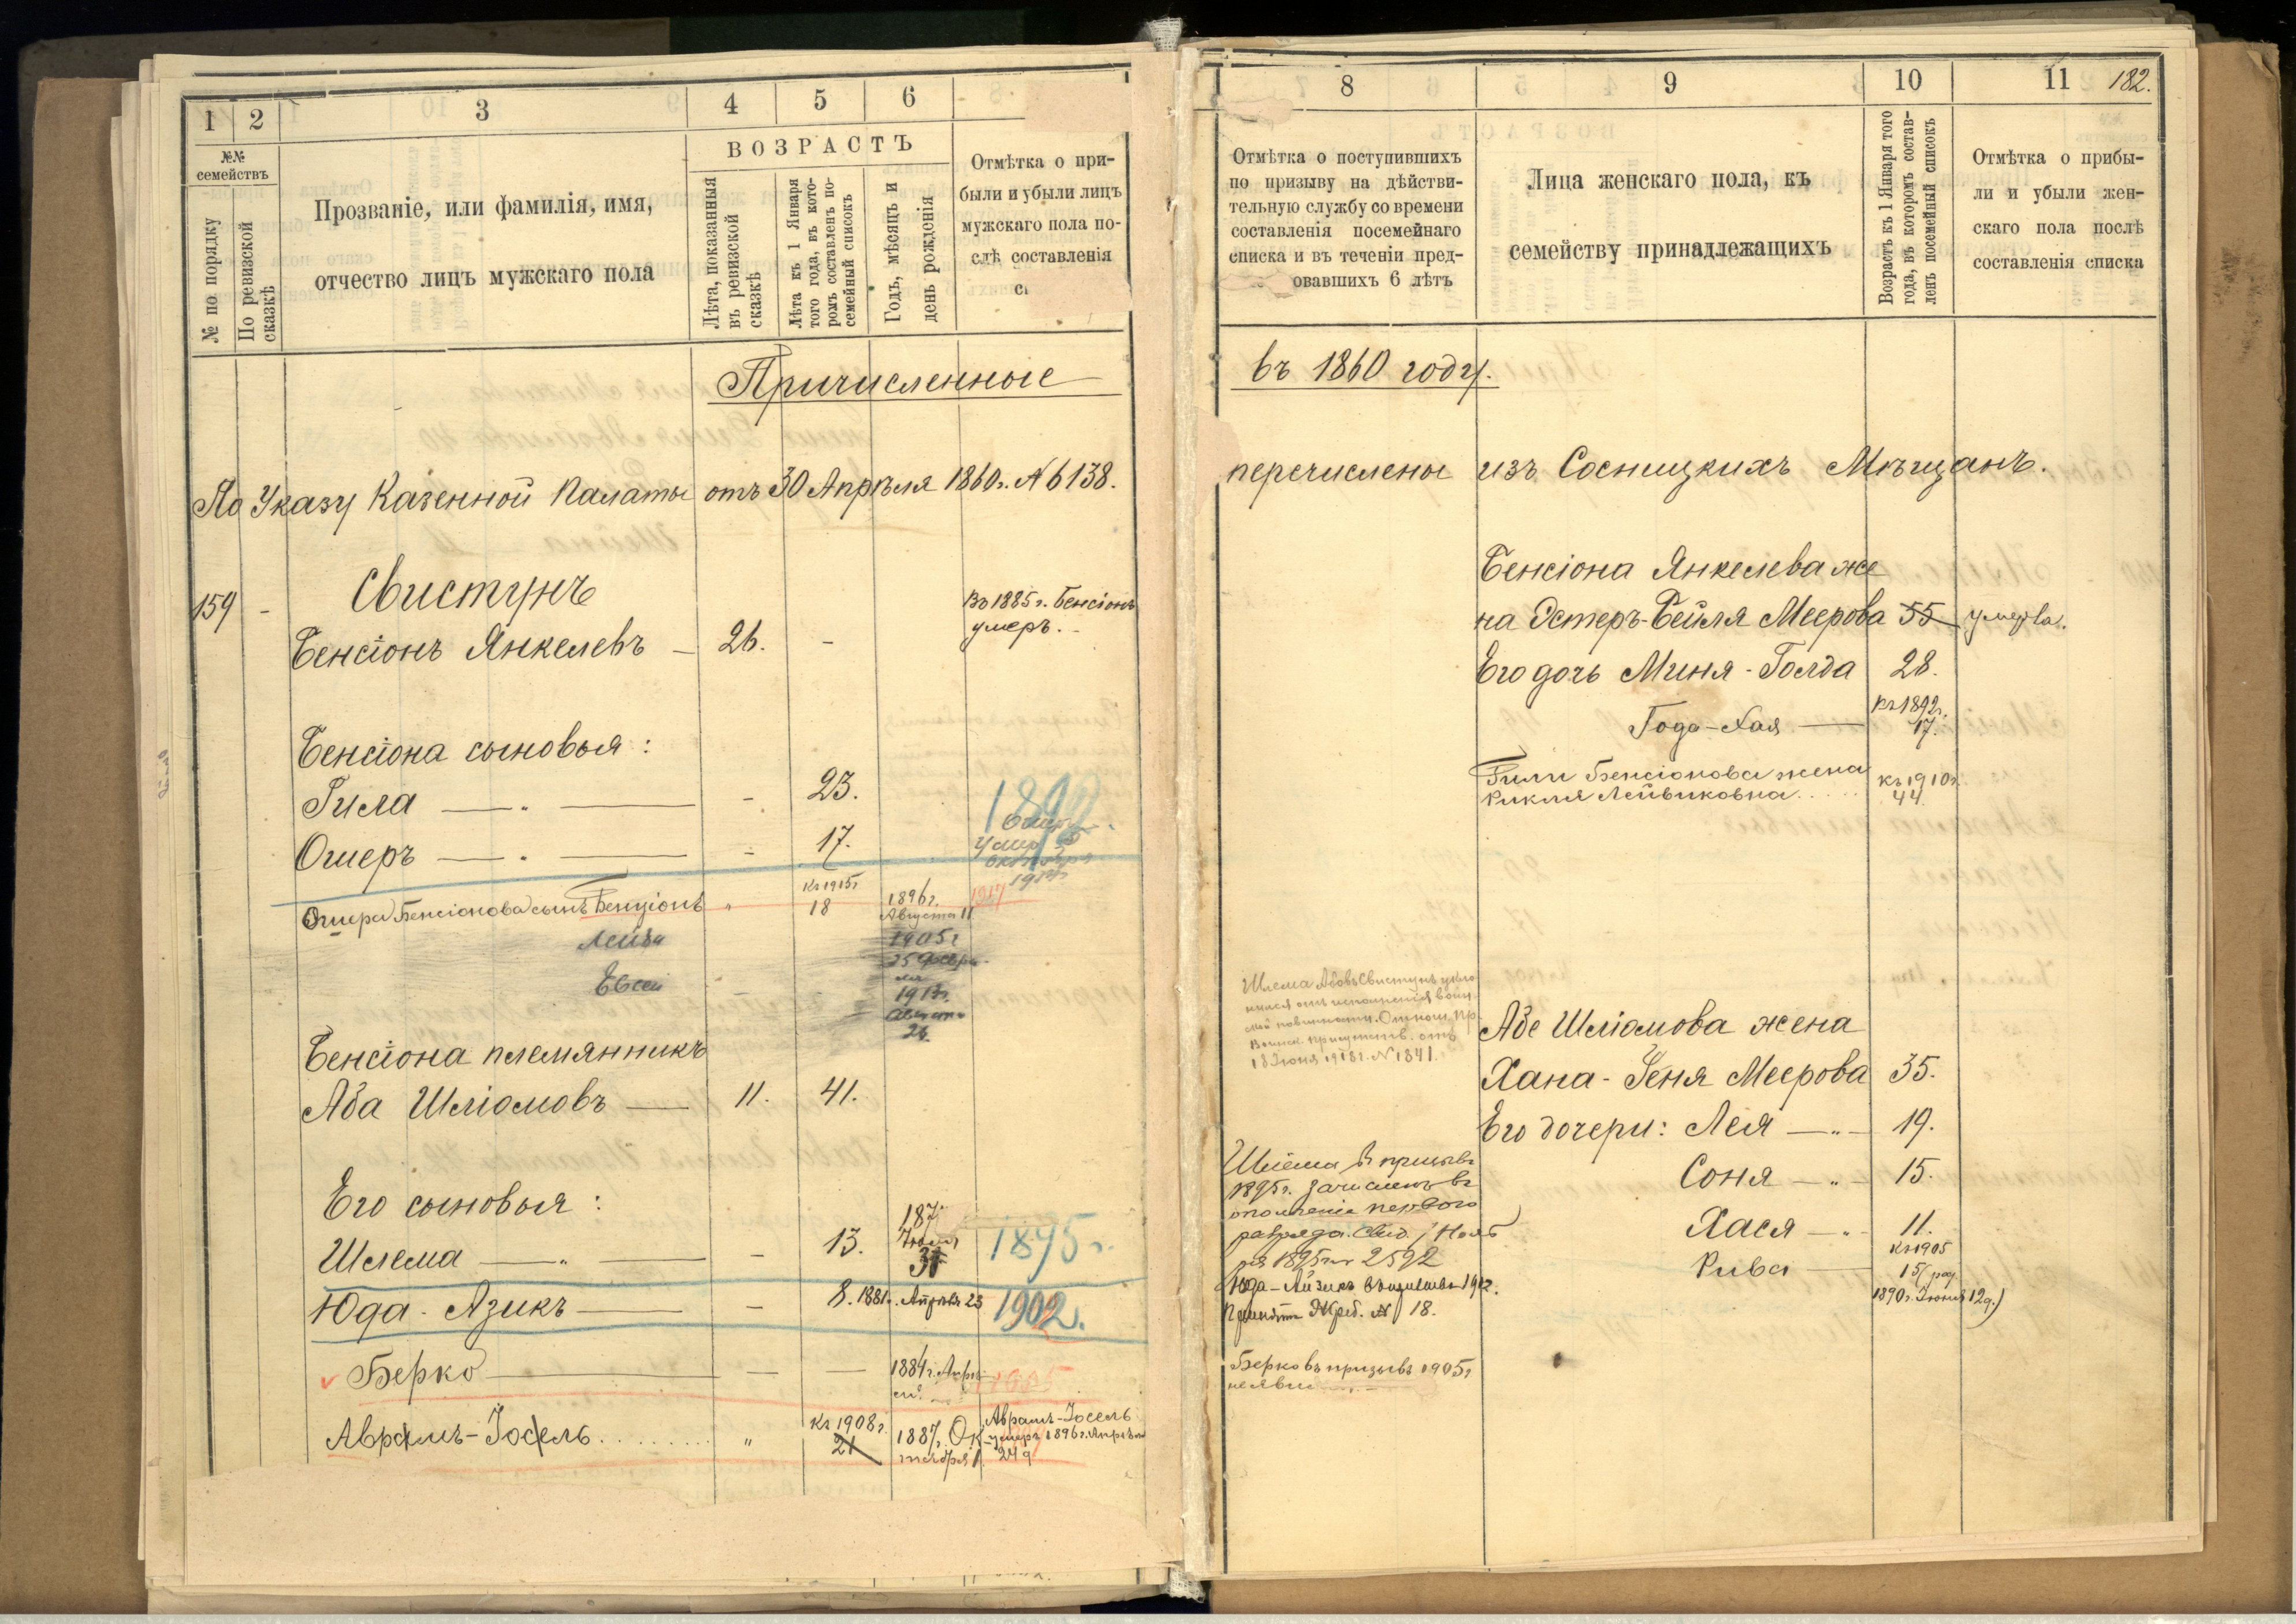 1 2 3 4 5 6
№№ семействъ
№ по порядку
По ревизской сказкѣ
Прозваніе, или фамилія, имя,
отчество лицъ мужскаго пола
ВОЗРАСТЪ
Лѣта, показанныя въ ревизской сказкѣ
Лѣта къ 1 Января того года, въ которомъ составленъ посемейный списокъ
Годъ, мѣсяцъ и день рожденія
Отмѣтка о при-
были и убыли лицъ
мужскаго пола по-
слѣ составленія
Причисленные
По Указу Казенной Палаты отъ 30 Апрѣля 1860 г. № 6138.
159 - Свистунъ
Бенсіонъ Янкелевъ — 26. -
Въ 1885 г. Бенсіонъ
умеръ.
Бенсіона сыновья:
Гила — " — - 23.
1892
Ошеръ — " — - 17.
умер
октября
Ошера Бенсіонова сынъ Бенціонъ " Къ 1915 г 18 1896 г. Августа 11 1917
Лейба 1905 г 25 Февра-
ля
Евсей - - 1913 г.
26.
Бенсіона племянникъ
Аба Шліомовъ — 11. 41.
Его сыновья:
Шлема — " — - 13. 1895 г.
Юда-Азикъ — - 8. 1881 г. Апрѣля 23 1902.
Берко — — — 1884 г. 1905
Аврамъ-Іосель " Къ 1908 г. 21 1887 г. Ок-
тября 1
Аврамъ-Іосель
умеръ 1896 г. Апрѣля
24 д
8 9 10 11 182.
Отмѣтка о поступившихъ
по призыву на дѣйстви-
тельную службу со времени
составленія посемейнаго
списка и въ теченіи пред-
овавшихъ 6 лѣтъ
Лица женскаго пола, къ
семейству принадлежащихъ
Возрастъ къ 1 Января того года, въ которомъ составленъ посемейный списокъ
Отмѣтка о прибы-
ли и убыли жен-
скаго пола послѣ
составленія списка
въ 1860 году.
перечислены изъ Сосницкихъ Мѣщанъ.
Бенсіона Янкелева же
на Эстеръ-Бейля Меерова 55 умерла.
Его дочь Миня-Голда 28.
Года-Хая — Къ 1892 г. 17.
Гили Бенсіонова жена
Рикля Лейвиковна Къ 1910 г 44
Шлема Абовъ Свистунъ укло
нился отъ исполненія воин-
ской повинности. Отнош. Пр.
Воинск. Присутств. отъ
18 Іюня 1918 г. № 1841.
Абе Шліомова жена
Хана-Геня Меерова 35.
Его дочери: Лея — " — 19.
Соня — " — 15.
Хася — " — 11.
Рива — Къ 1905 15 (род
1890 г. Іюня 12 д.)
Шлема въ призывъ
1895 г. зачисленъ въ
ополченіе перваго
разряда. Свид. 1 Нояб
ря 1895 г. № 2592
Юда-Айзикъ въ призывъ 1902.
Принятъ Жреб. № 18.
Берко въ призывъ 1905 г